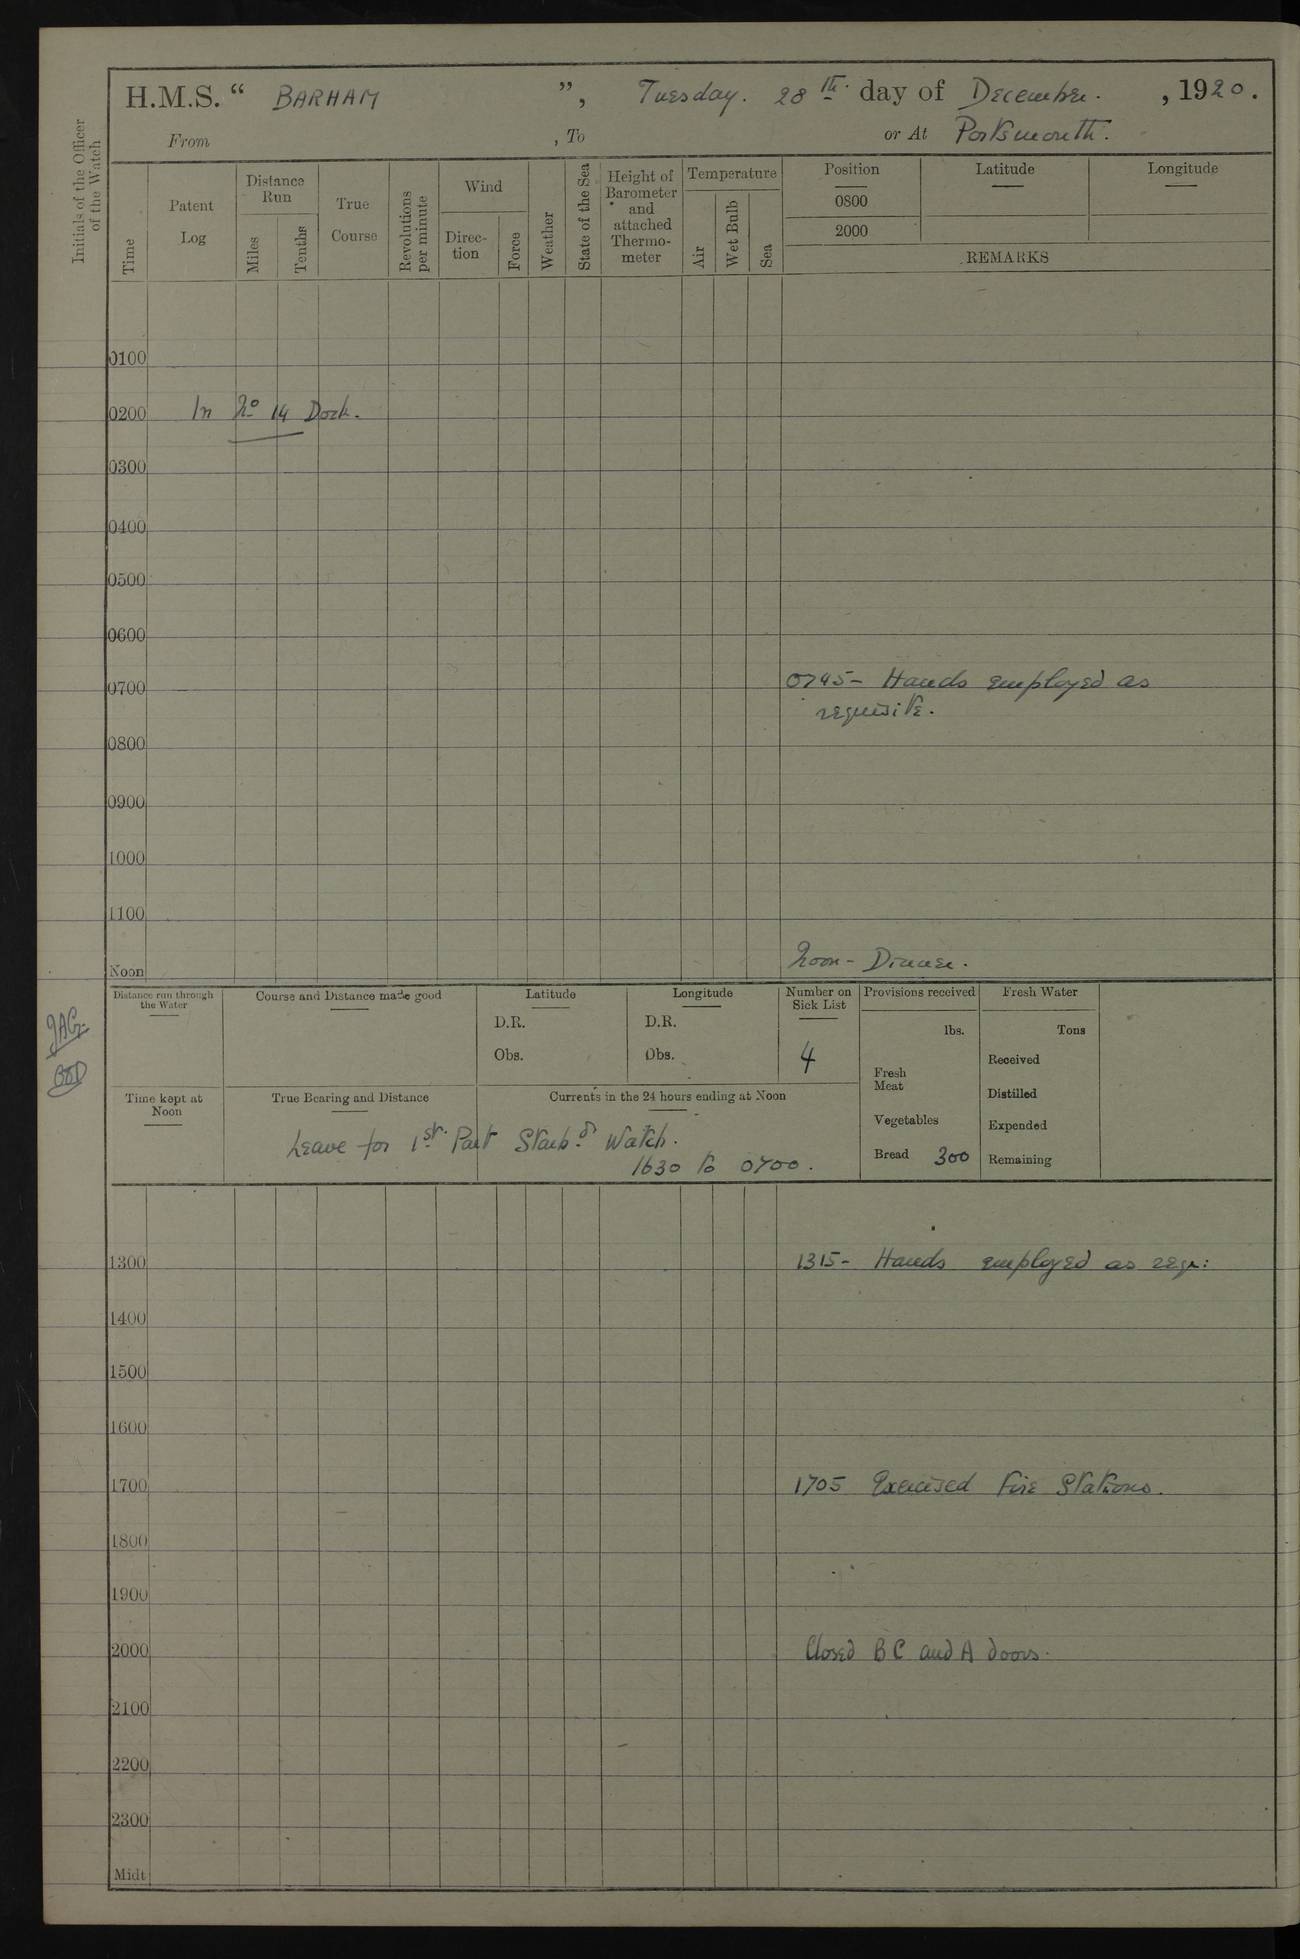 H.M.S. “ BARHAM ”, Tuesday. 28th. day of December. , 1920.
From , To or At Portsmouth.
Initials of the Officer of the Watch
Time
Patent Log
Distance Run
Miles
Tenths
True Course
Revolutions per minute
Wind
Direc-
tion
Force
Weather
State of the Sea
Height of
Barometer
and
attached
Thermo-
meter
Temperature
Air
Wet Bulb
Sea
Position Latitude Longitude
0800
2000
REMARKS
0100
0200 In No 14 Dock.
0300
0400
0500
0600
0700 0745- Hands employed as
requisite.
0800
0900
1000
1100
Noon Noon - Dinner.
Distance run through
the Water
Course and Distance made good
Latitude
D.R.
Obs.
Longitude
D.R.
Obs.
Number on
Sick List
4
Provisions received
lbs.
Fresh
Meat
Vegetables
Bread 300
Fresh Water
Tons
Received
Distilled
Expended
Remaining
Time kept at
Noon
True Bearing and Distance
Currents in the 24 hours ending at Noon
Leave for 1st. Part Starbd Watch.
1630 to 0700.
1300 1315- Hands employed as req:
1400
1500
1600
1700 1705 Exercised Fire Stations.
1800
1900
2000 Closed B C and A doors.
2100
2200
2300
Midt